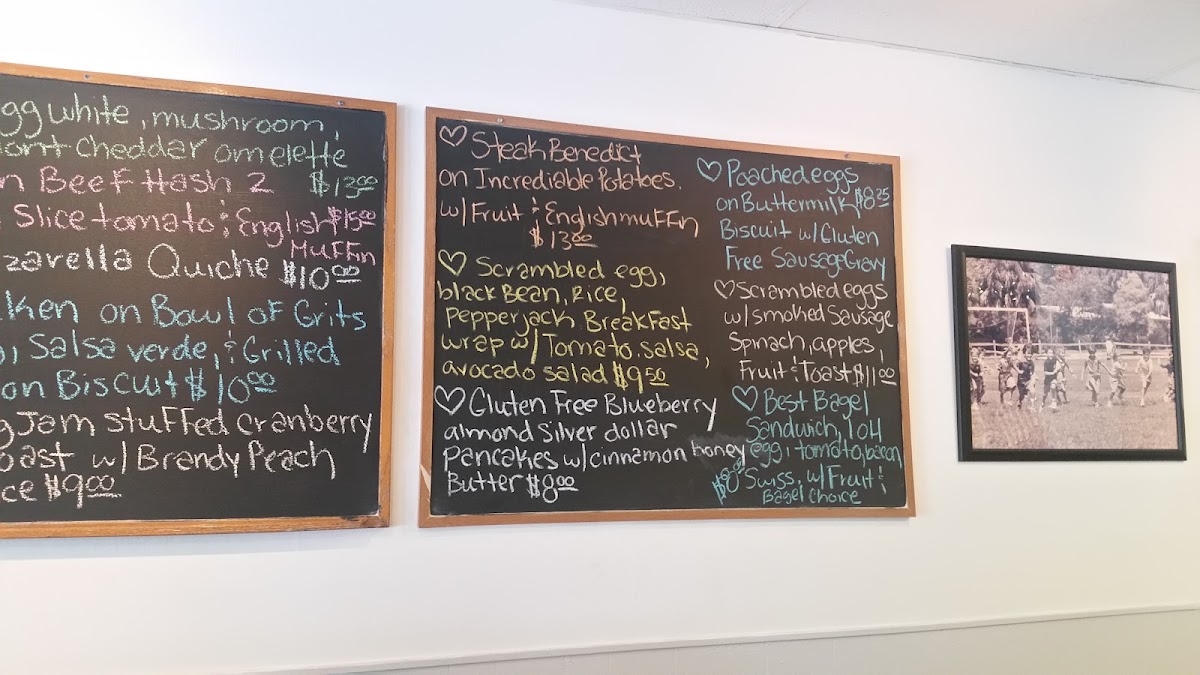 gg white, mushroom,
ont cheddar omelette
$13.00
n Beef Hash 2
Slice tomato & English $15.00
Muffin
zzavella Quiche $10.00
ken on Bowl of Grits
, Salsa verde, & Grilled
on Biscuit $10.00
g Jam stuffed cranberry
oast w/ Brandy Peach
ce $9.00
♡ Steak Benedict
on Incrediable Potatoes.
w/ Fruit & English muffin
$13.00
♡ Scrambled egg,
black Bean, Rice,
Pepper jack BreakFast
wrap w/ Tomato, salsa,
avocado salad $9.50
♡ Gluten Free Blueberry
almond Silver dollar
pancakes w/ cinnamon honey
Butter $8.00
♡ Poached eggs
on Buttermilk $8.25
Biscuit w/ Gluten
Free Sausage Gravy
♡ Scrambled eggs
w/ smoked Sausage
Spinach, apples,
Fruit & Toast $11.00
♡ Best Bagel
Sandwich, 1 OH
egg, tomato, bacon
Swiss, w/ Fruit &
Bagel choice